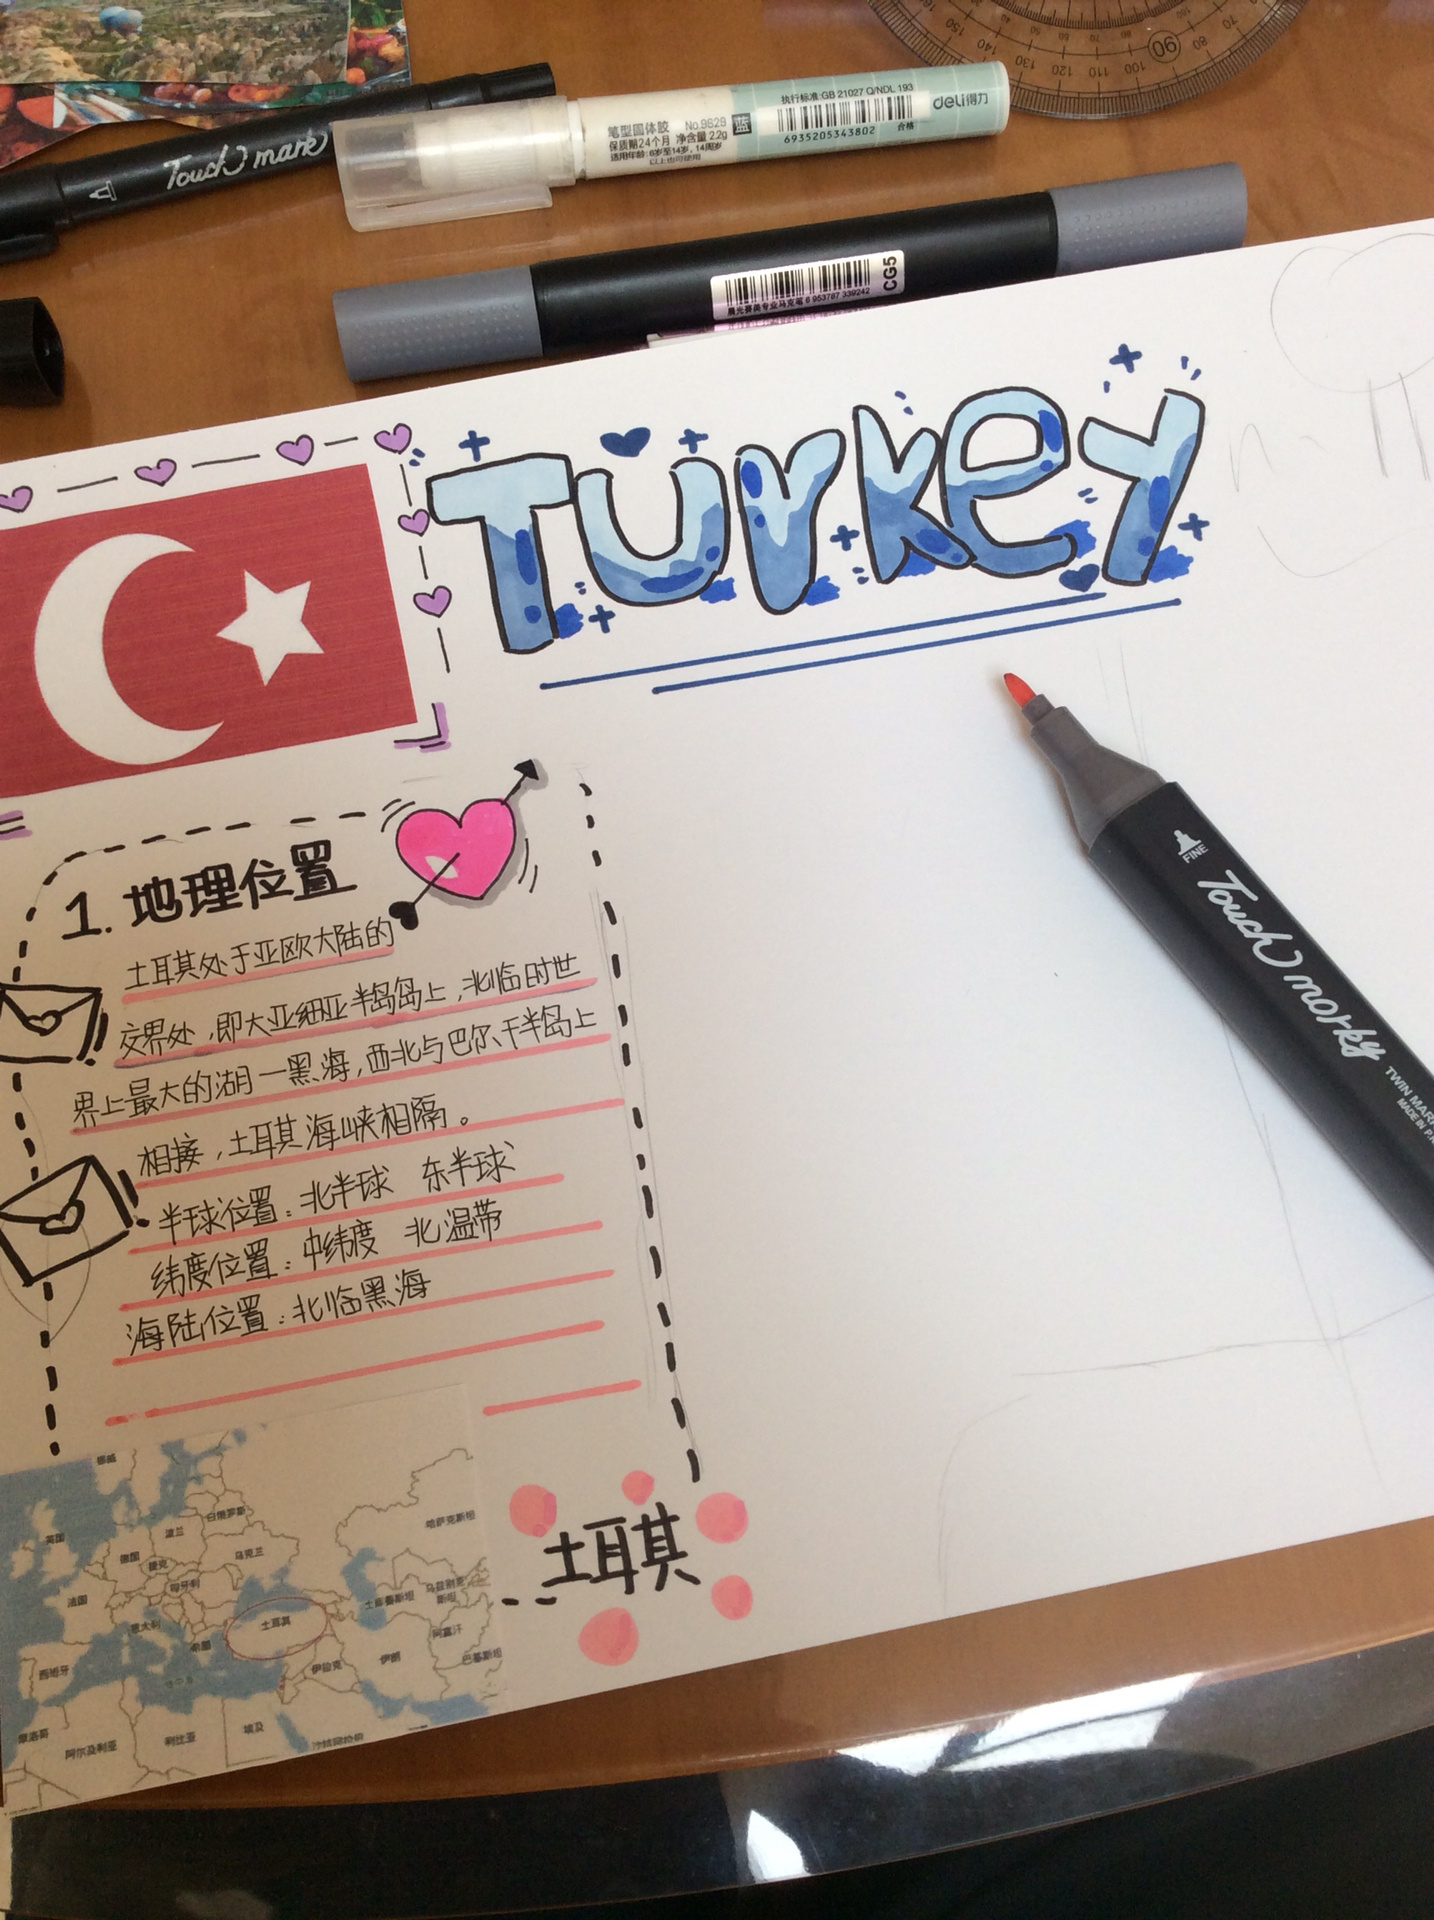 Touch mark
笔型固体胶 No.9629
保质期24个月 净含量2.2g
适用年龄:6岁至14岁, 14周岁
以上也可使用
蓝
执行标准:GB 21027 Q/NDL 193
6935205343802 合格
deli得力
CG5
晨光赛美专业马克笔 6 953787 339242
160
150
140
130
120
110
100
90
80
70
Turkey
1. 地理位置
土耳其处于亚欧大陆的
交界处,即大亚细亚半岛岛上,北临时世
界上最大的湖一黑海,西北与巴尔干半岛上
相接,土耳其海峡相隔。
半球位置:北半球 东半球
纬度位置:中纬度 北温带
海陆位置:北临黑海
FINE
Touch morky
TWIN MAR
MADE IN P.
土耳其
挪威
英国
白俄罗斯
波兰
德国
捷克
乌克兰
哈萨克斯坦
法国
匈牙利
意大利
土耳其
希腊
土库曼斯坦
乌兹别克
斯坦
西班牙
伊拉克
伊朗
阿富汗
巴基斯坦
摩洛哥
阿尔及利亚
利比亚
埃及
沙特阿拉伯